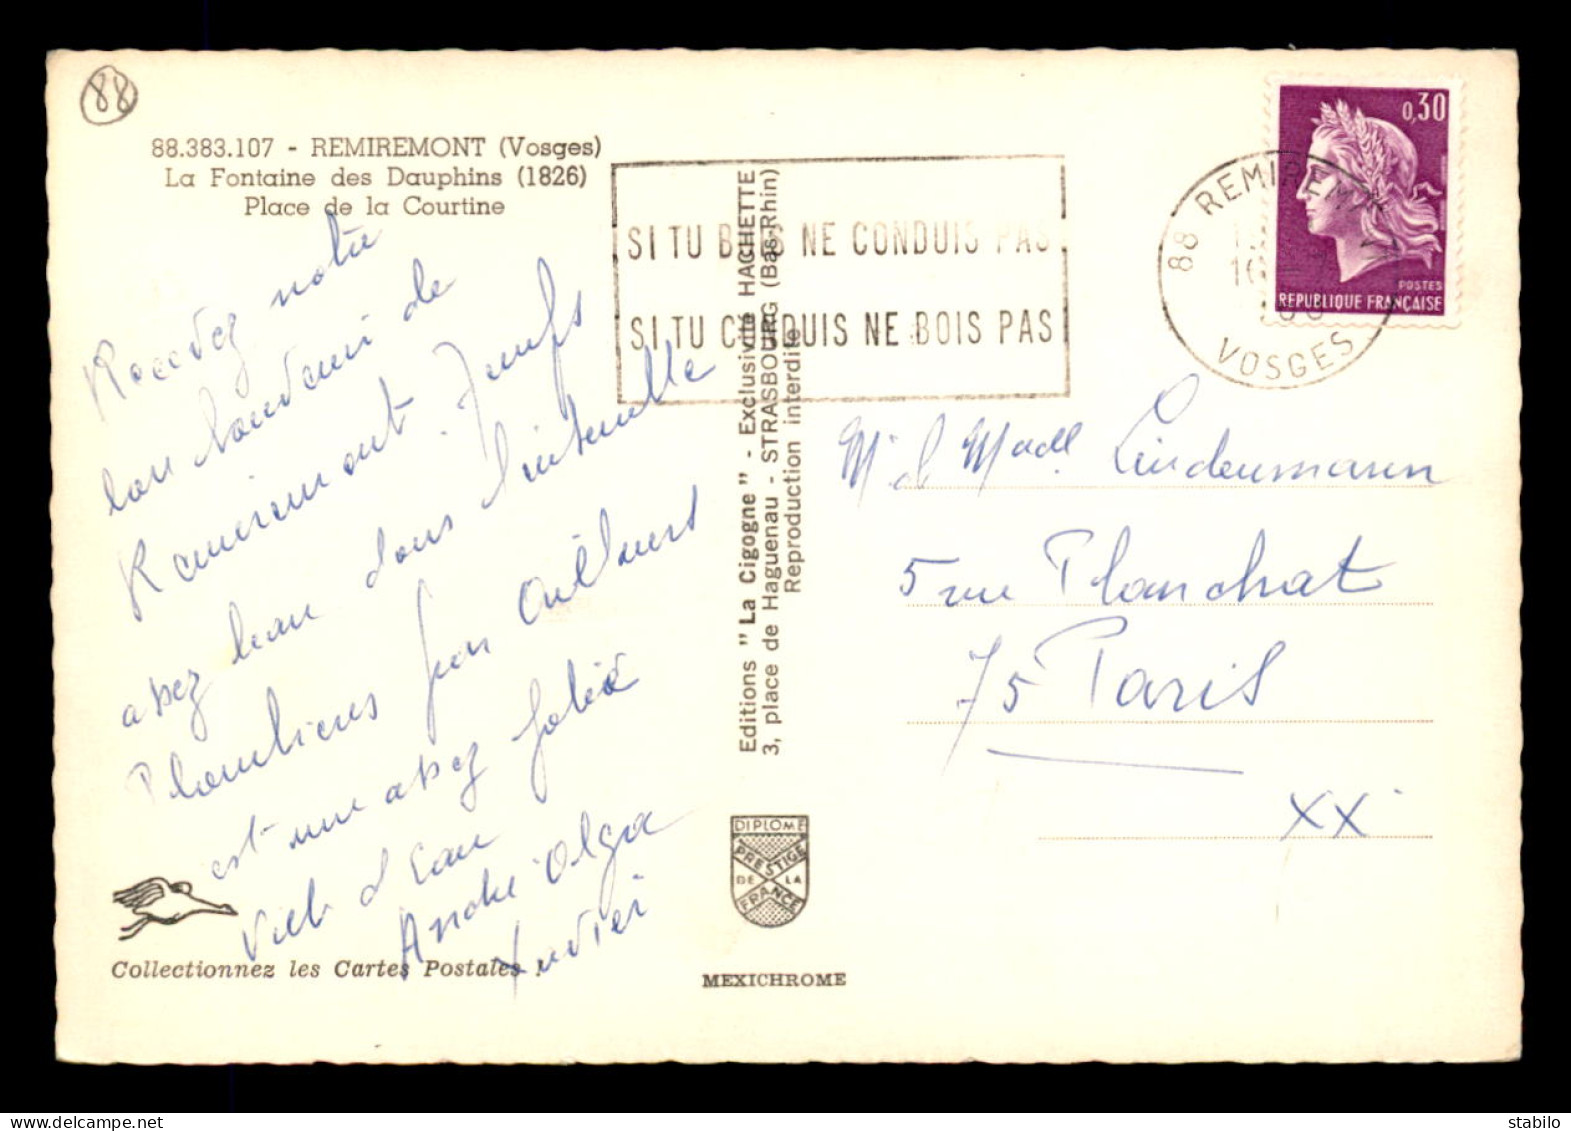 88
88.383.107 - REMIREMONT (Vosges)
La Fontaine des Dauphins (1826)
Place de la Courtine
Recevez notre
bon souvenir de
Remiremont. Temps
assez beau dans l'ensemble
Plombières par ailleurs
est une assez jolie
ville d'eau
André Olga
Xavier
Collectionnez les Cartes Postales !
SI TU BOIS NE CONDUIS PAS
SI TU CONDUIS NE BOIS PAS
Editions "La Cigogne" - Exclusivité HACHETTE
3, place de Haguenau - STRASBOURG (Bas-Rhin)
Reproduction interdite
DIPLOME
PRESTIGE
DE LA
FRANCE
MEXICHROME
0,30
POSTES
REPUBLIQUE FRANÇAISE
88 REMIREMONT
VOSGES
Mr et Made Lindenmann
5 rue Planchat
75 Paris
XX
stabilo